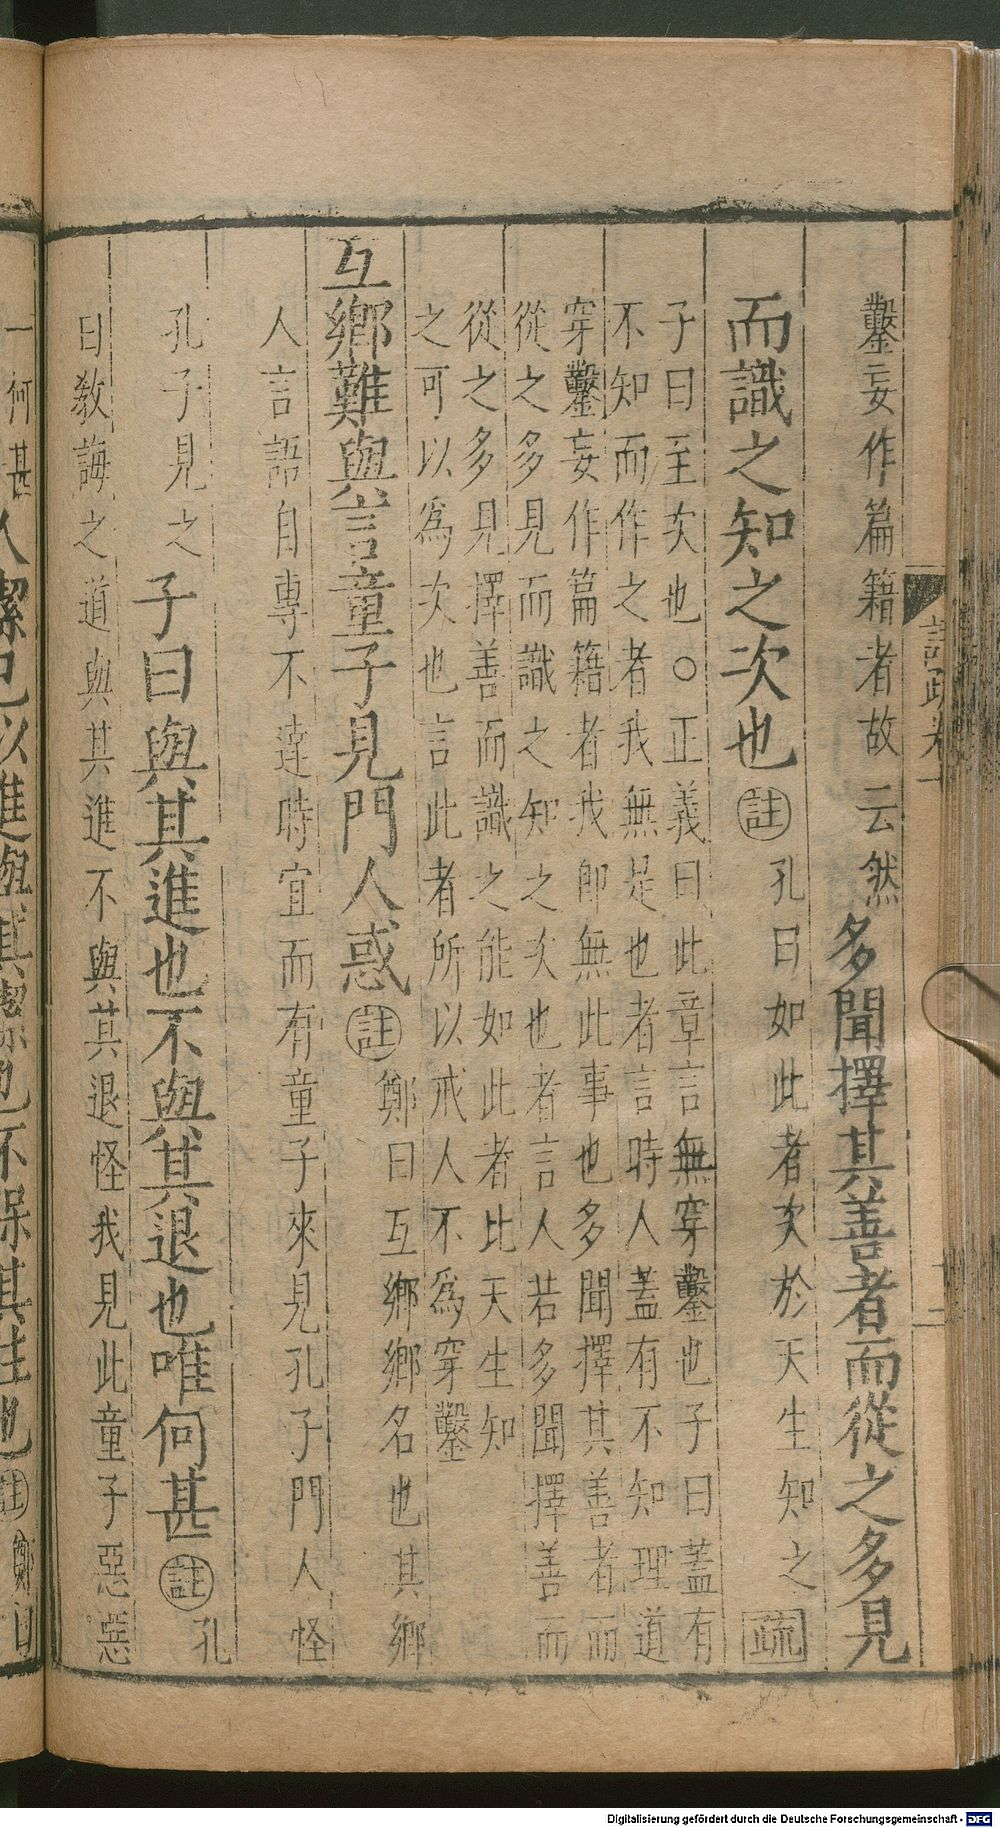 語疏卷
鑿妄作篇籍者故云然多聞擇其善者而從之多見
而識之知之次也註孔曰如此者次於天生知之疏
子曰至次也○正義曰此章言無穿鑿也子曰蓋有
不知而作之者我無是也者言時人蓋有不知理道
穿鑿妄作篇籍者我即無此事也多聞擇其善者而
從之多見而識之知之次也者言人若多聞擇善而
從之多見擇善而識之能如此者比天生知
之可以為次也言此者所以戒人不為穿鑿
互鄉難與言童子見門人惑註鄭曰互鄉鄉名也其鄉
人言語自專不達時宜而有童子來見孔子門人怪
孔子見之子曰與其進也不與其退也唯何甚註孔
曰教誨之道與其進不與其退怪我見此童子惡惡
一何甚人潔己以進與其潔也不保其往也註鄭曰
Digitalisierung gefördert durch die Deutsche Forschungsgemeinschaft - DFG